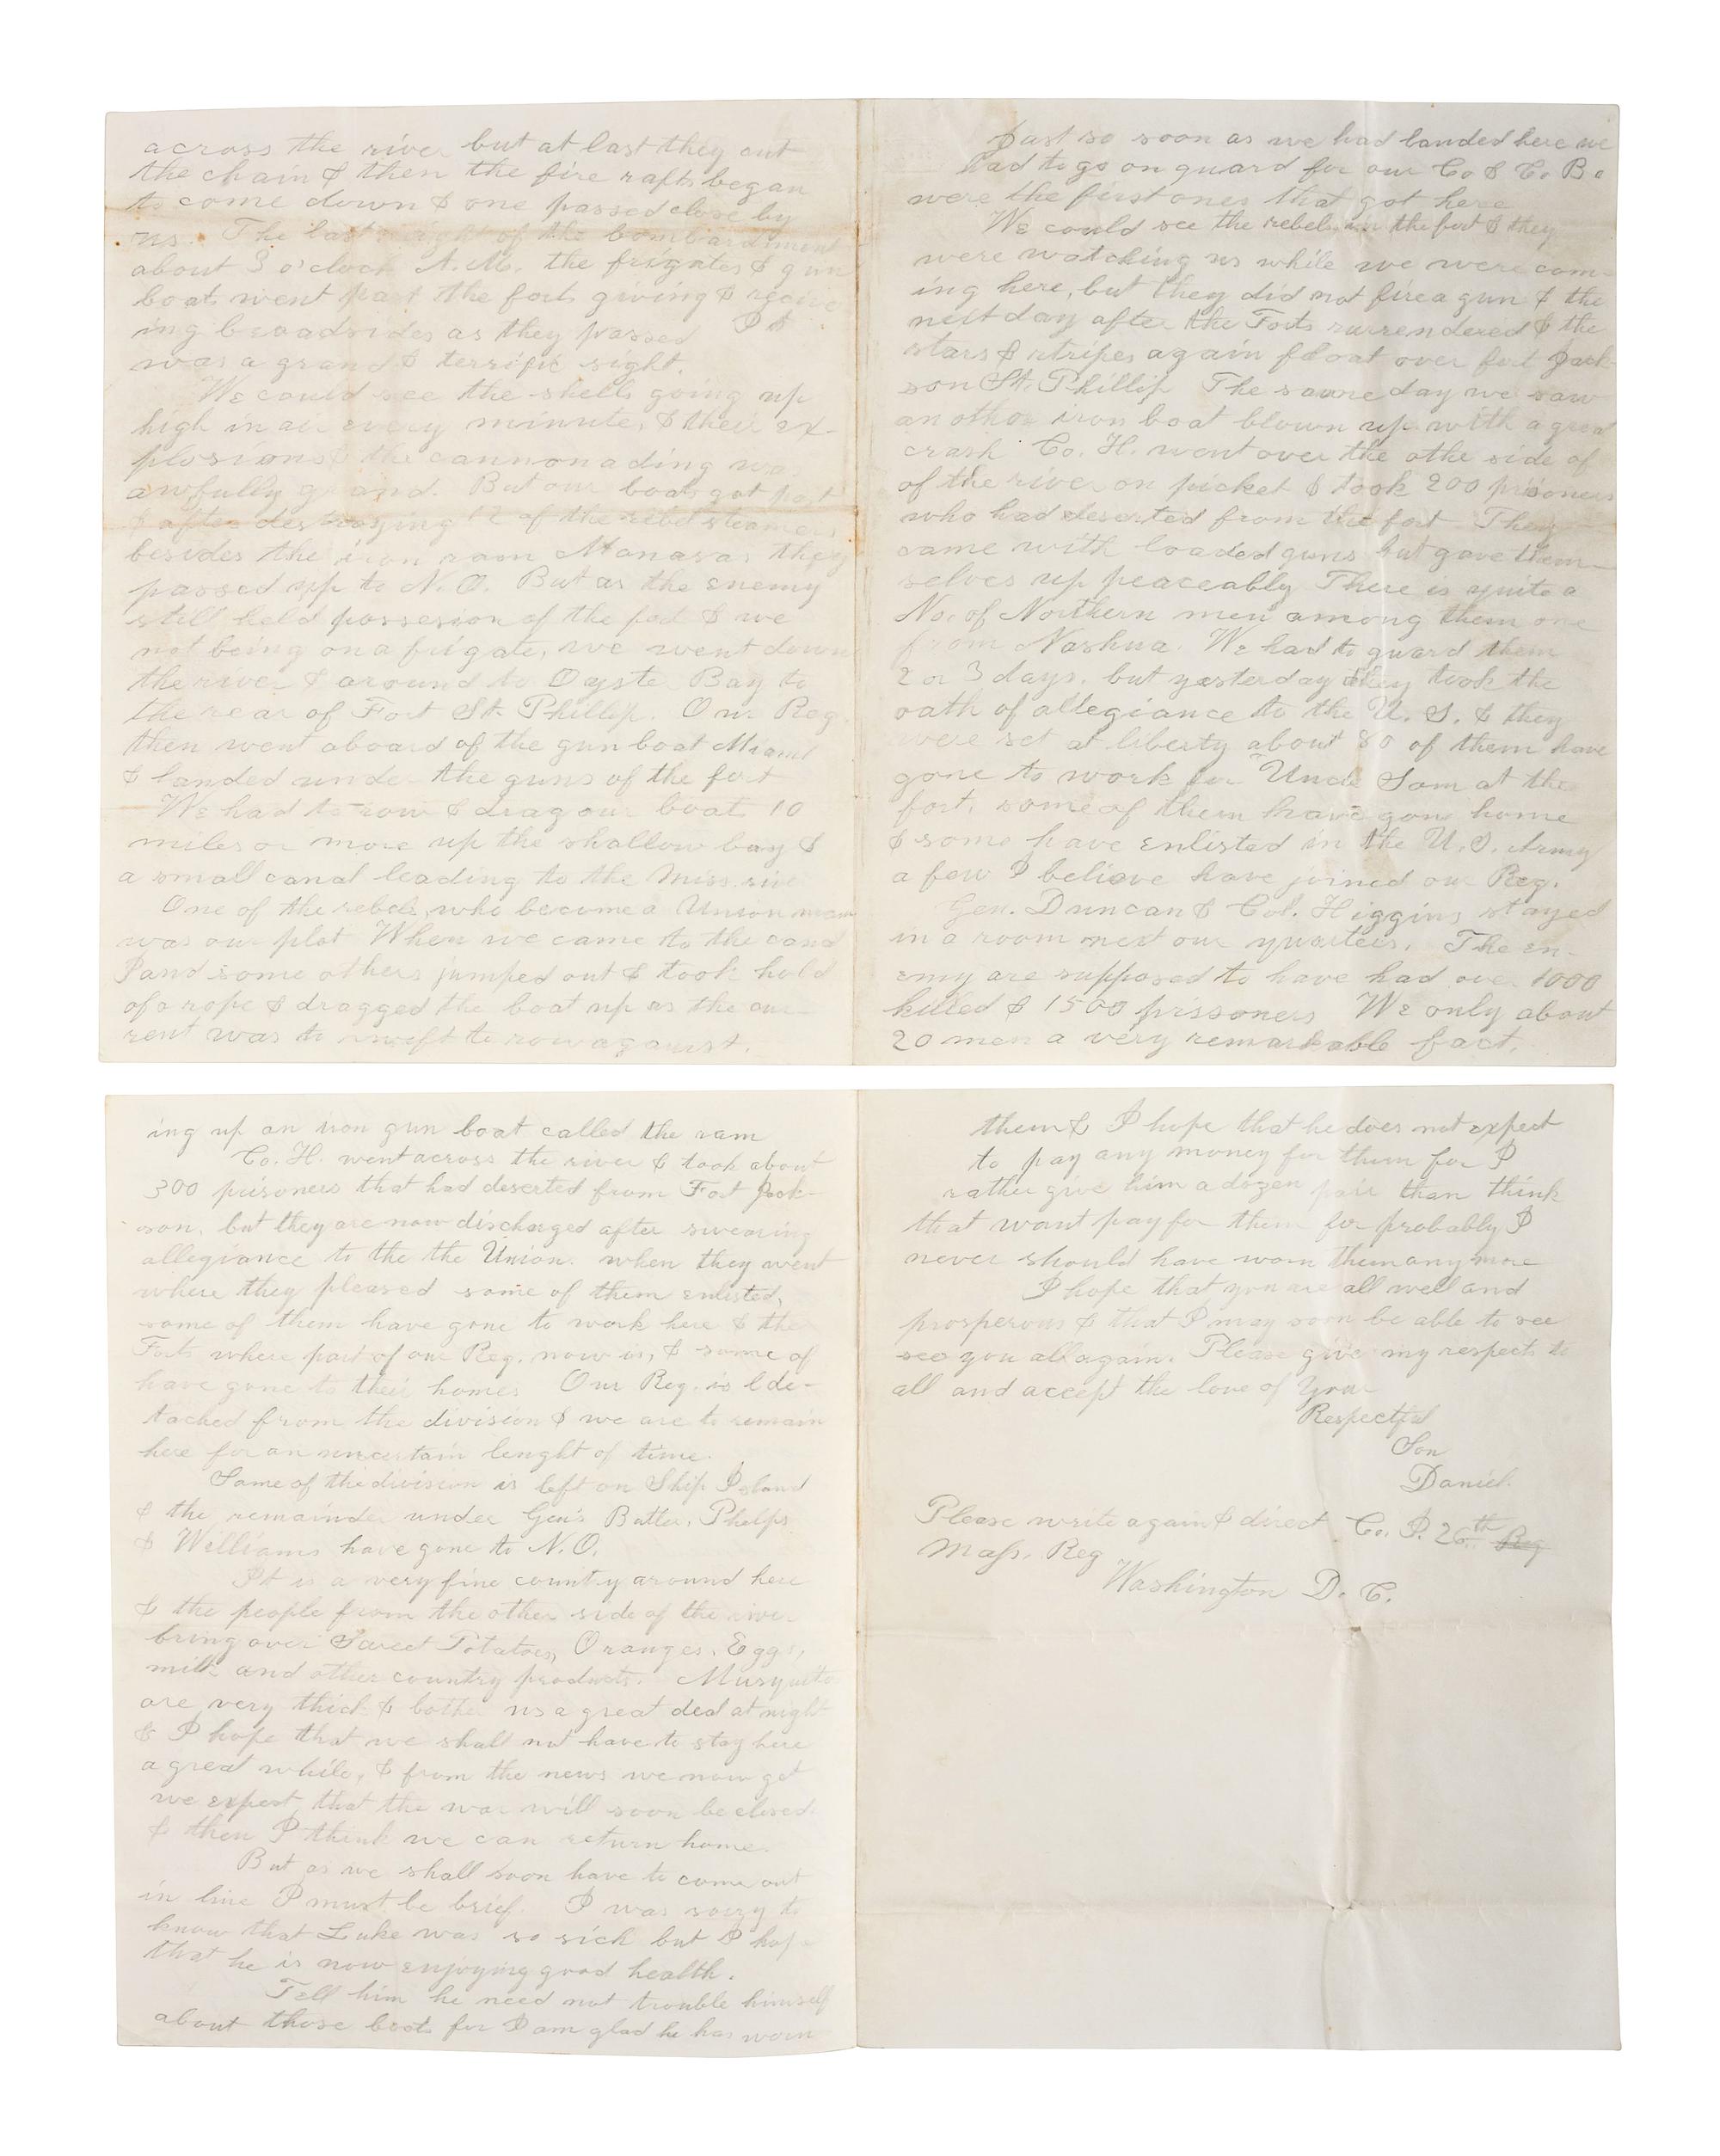 across the river but at last they cut
the chain & then the fire rafts began
to come down & one passed close by
us. The last night of the bombardment
about 3 o'clock A.M. the frigates & gun
boats went past the forts giving & receiv
ing broadsides as they passed It
was a grand & terrific sight.
We could see the shells going up
high in air every minute, & their ex-
plosions & the cannonading was
awfully grand. But our boats got past
& after destroying 12 of the rebel steamers
besides the iron ram Manasas they
passed up to N.O. But as the enemy
still held possesion of the fort & we
not being on a frigate, we went down
the river & around to Oyster Bay to
the rear of Fort St. Phillip. Our Reg.
then went aboard of the gun boat Miami
& landed under the guns of the fort
We had to row & drag our boat 10
miles or more up the shallow bay &
a small canal leading to the Miss. river
One of the rebels, who become a Union man
was our plot When we came to the canal
I and some others jumped out & took hold
of a rope & dragged the boat up as the cur-
rent was to swift to row against.
Just so soon as we had landed here we
had to go on guard for our Co & Co B
were the first ones that got here
We could see the rebels in the fort & they
were watching us while we were com-
ing here, but they did not fire a gun & the
next day after the Forts surrendered & the
stars & stripes again float over fort Jack-
son St. Phillip The same day we saw
another iron boat blown up with a great
crash Co. H. went over the othe side of
of the river on picket & took 200 prisoners
who had deserted from the fort They
came with loaded guns but gave them-
selves up peaceably There is quite a
No. of Northern men among them one
from Nashua. We had to guard them
2 or 3 days. but yesterday they took the
oath of allegiance to the U.S. & they
were set at liberty about 80 of them have
gone to work for Uncle Sam at the
fort, some of them have gone home
& some have enlisted in the U.S. Army
a few I believe have joined our Reg.
Gen. Duncan & Col. Higgins stayed
in a room next our quarters. The en-
emy are supposed to have had over 1000
killed & 1500 prissoners We only about
20 men a very remarkable fact.
ing up an iron gun boat called the ram
Co. H. went across the river & took about
300 prisoners that had deserted from Fort Jack-
son, but they are now discharged after swearing
allegiance to the the Union. when they went
where they pleased some of them enlisted,
some of them have gone to work here & the
Forts where part of our Reg. now is, & some of
have gone to their homes Our Reg. is de-
tached from the division & we are to remain
here for an uncertain lenght of time.
Some of the division is left on Ship Island
& the remainder under Gen's Butler, Phelps
& Williams have gone to N.O.
It is a very fine county around here
& the people from the other side of the river
bring over Sweet Potatoes, Oranges, Eggs,
milk and other country products. Musquitto
are very thick & bother us a great deal at night
& I hope that we shall not have to stay here
a great while, & from the news we now get
we expect that the war will soon be closed
& then I think we can return home.
But as we shall soon have to come out
in line I must be brief. I was sorry to
know that Luke was so sick but I hope
that he is now enjoying good health.
Tell him he need not trouble himself
about those boots for I am glad he has worn
them & I hope that he does not expect
to pay any money for them for I
rather give him a dozen pair than think
that want pay for them for probably I
never should have worn them any more
I hope that you are all well and
prosperous & that I may soon be able to see
see you all again. Please give my respects to
all and accept the love of Your
Respectful
Son
Daniel.
Please write again & direct Co. I. 26th Reg
Mass. Reg
Washington D.C.